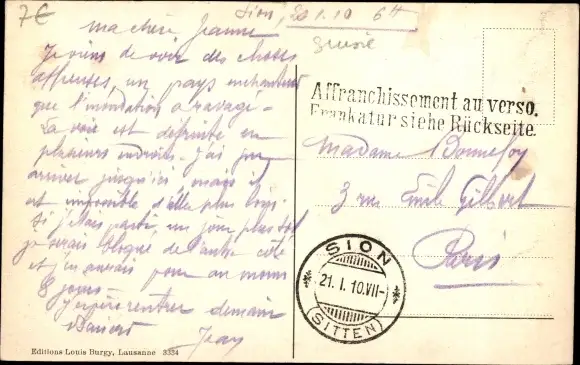 7€
Sion, 20.1.10 6H
Suisse
ma chérie Jeanne
Je viens de voir des choses
affreuses, un pays enchanteur
que l'inondation a ravagé -
La voie est détruite en
plusieurs endroits. J'ai pu
arriver jusqu'ici, mais il
est impossible d'aller plus loin.
Si j'étais parti un jour plus tôt
je serais bloqué de l'autre côté
et j'en aurais pour au moins
8 jours -
J'espère rentrer demain
Baisers
Jean
Editions Louis Burgy, Lausanne 3334
Affranchissement au verso.
Frankatur siehe Rückseite.
Madame Bonnefoy
3 rue Emile Gilbert
Paris
SION
21. I. 10. VII-
(SITTEN)